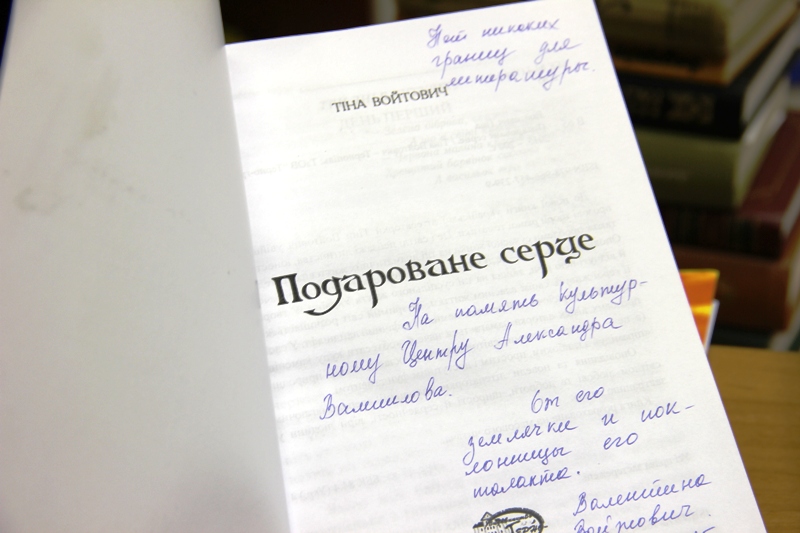 Нет никаких
границ для
литературы.
ТІНА ВОЙТОВИЧ
Подароване серце
На память Культур-
ному Центру Александра
Вампилова.
От его
землячки и пок-
лонницы его
таланта.
Валентина
Войтович